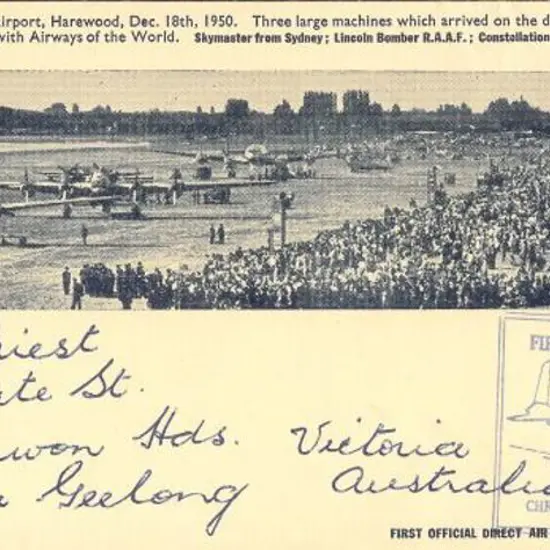 airport, Harewood, Dec. 18th, 1950. Three large machines which arrived on the d
with Airways of the World. Skymaster from Sydney; Lincoln Bomber R.A.A.F.; Constellation
riest
te St.
won Hds. Victoria
Geelong Australia
FIR
CHR
FIRST OFFICIAL DIRECT AIR